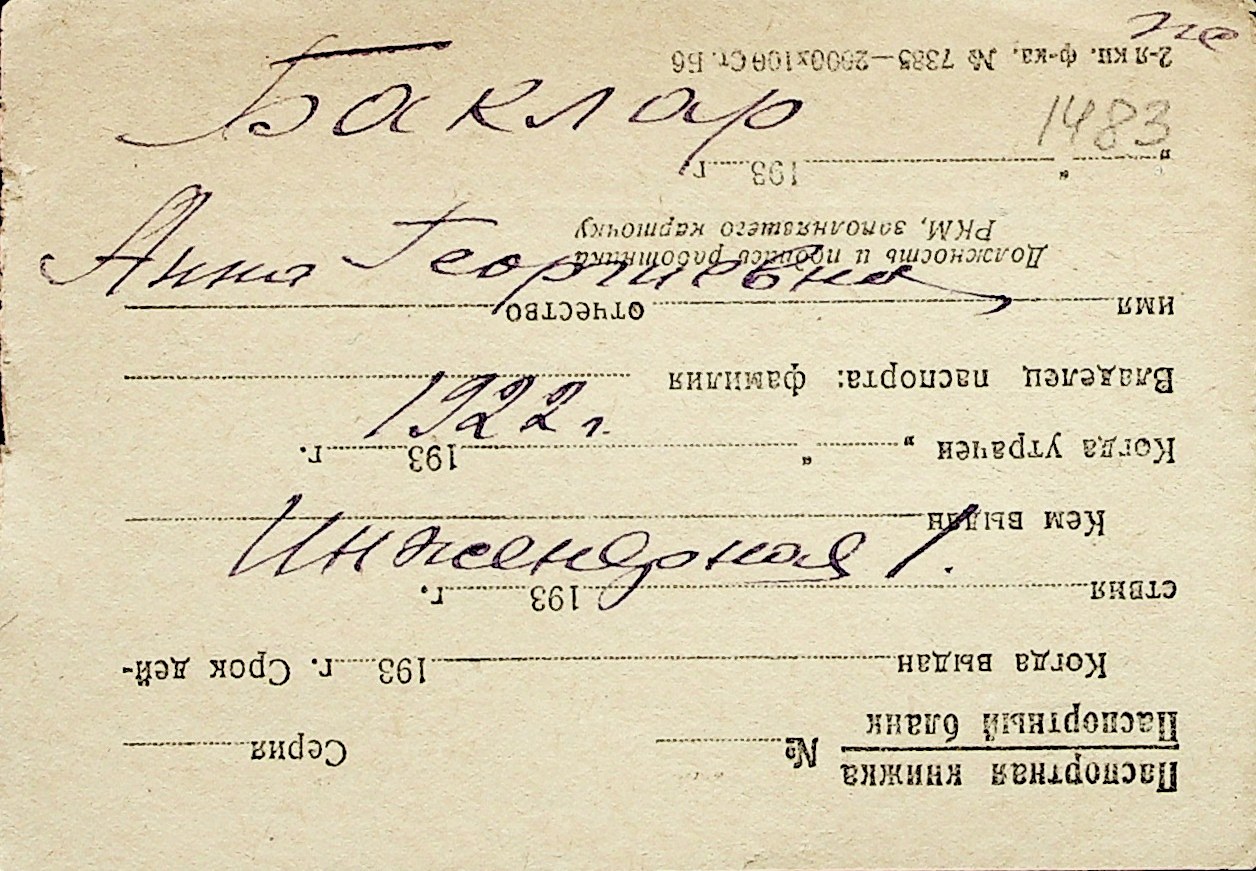 не
Баклар
1483
Анна Георгиевна
1922 г.
Инженерная 1.
Паспортная книжка
Паспортный бланк № Серия
Когда выдан 193 г. Срок дей-
ствия 193 г.
Кем выдан
Когда утрачен „ “ 193 г.
Владелец паспорта: фамилия
имя отчество
Должность и подпись работника
РКМ, заполнявшего карточку
„ “ 193 г.
2-я кн. ф-ка. № 7385—2000х100 Ст. Бб